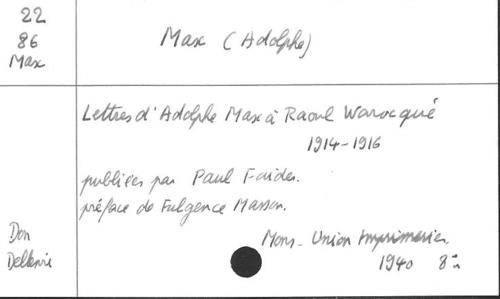 22
86
Max
Max (Adolphe)
Lettres d'Adolphe Max à Raoul Warocqué
1914-1916
publiées par Paul Faider.
préface de Fulgence Masson.
Mons - Union Imprimeries
1940 8°
Don